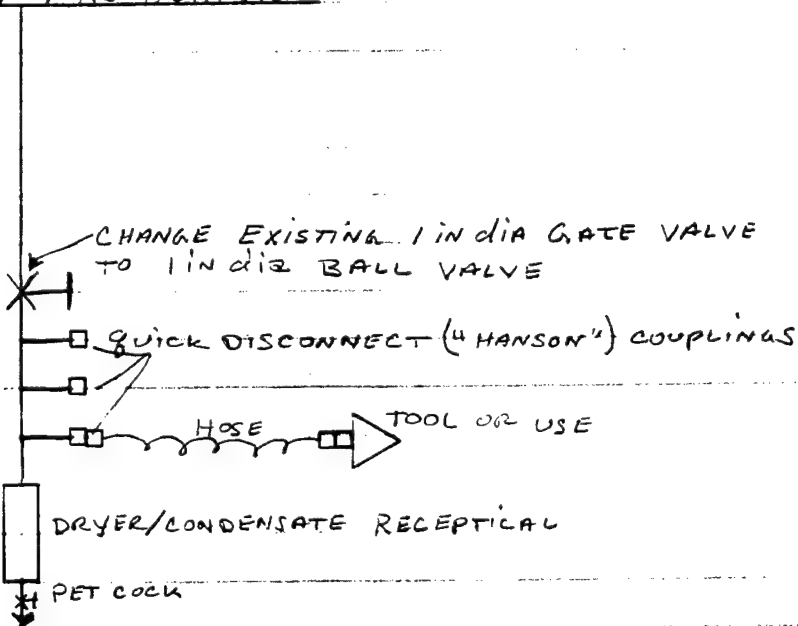 CHANGE EXISTING 1 IN diA GATE VALVE
TO 1 IN diA BALL VALVE
QUICK DISCONNECT ("HANSON") COUPLINGS
HOSE
TOOL OR USE
DRYER/CONDENSATE RECEPTICAL
PET COCK